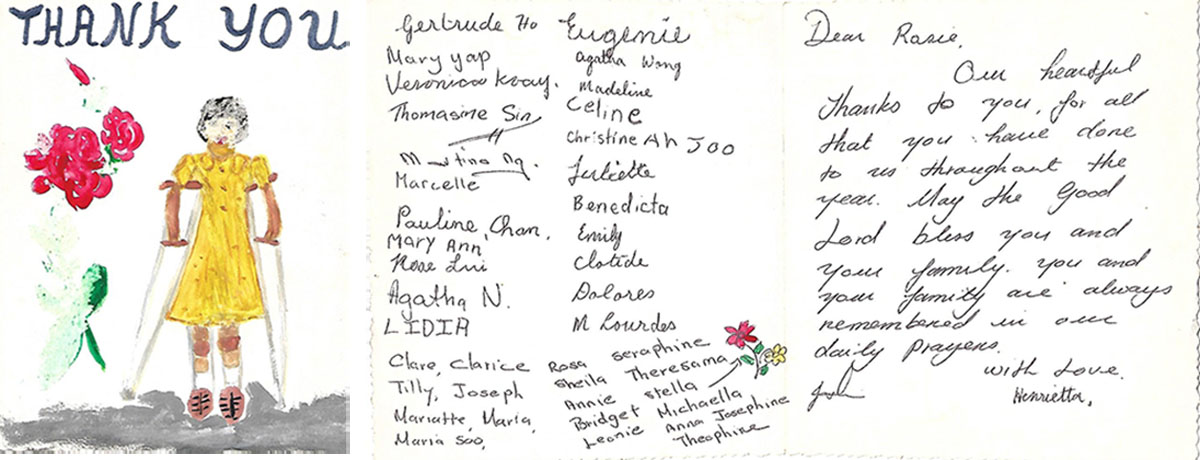 THANK YOU
Gertrude Ho
Mary Yap
Veronica Kvay.
Thomasine Sin
Ng.
Marcelle
Pauline Chan.
Mary Ann
Rose Lui
Agatha N.
LIDIA
Clare, Clarice
Tilly, Joseph
Mariatte, Maria,
Maria Soo,
Eugenie
Agatha Wong
Madeline
Celine
Christine Ah Joo
Juliette
Benedicta
Emily
Clotide
Dolores
M Lourdes
Rosa Seraphine
Sheila Theresama
Annie Stella
Bridget Michaella
Leonie Anna Josephine
Theophine
Dear Rosie,
Our heartful
Thanks to you, for all
that you have done
to us throughout the
year. May the Good
Lord bless you and
your family. You and
your family are always
remembered in our
daily prayers.
With Love.
Henrietta,